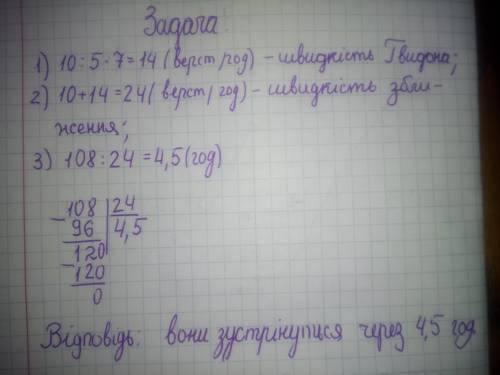 Задача:
1) 10:5·7=14 (верст/год) - швидкість Гвидона;
2) 10+14=24 (верст/год) - швидкість збли-
ження;
3) 108:24=4,5 (год)
108 24
- 96 4,5
120
- 120
0
Відповідь: вони зустрінулися через 4,5 год